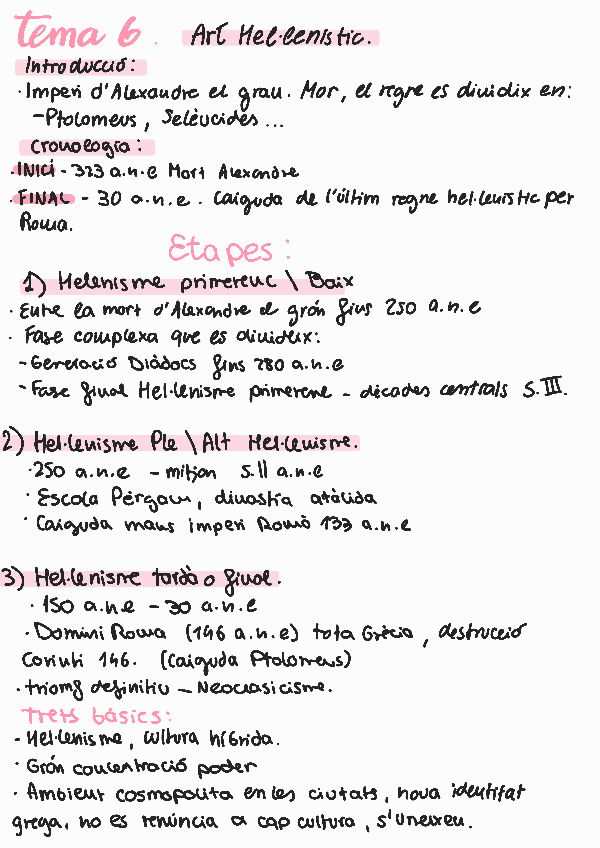 Tema 6. Art Hel·lenístic.
Introducció:
· Imperi d'Alexandre el grau. Mor, el regne es dividix en:
- Ptolomeus, Selèucides ...
Cronologia:
· INICI - 323 a.n.e Mort Alexandre
· FINAL - 30 a.n.e. Caiguda de l'últim regne hel·lenístic per
Roma.
Etapes:
1) Helenisme primerenc \ Baix
· Entre la mort d'Alexandre el grán fins 250 a.n.e
· Fase complexa que es divideix:
- Generació Diàdocs fins 280 a.n.e
- Fase final Hel·lenisme primerenc - dècades centrals S.III.
2) Hel·lenisme Ple \ Alt Hel·lenisme.
· 250 a.n.e - mitjan s.II a.n.e
· Escola Pèrgam, dinastia atàlida
· Caiguda mans imperi Romà 133 a.n.e
3) Hel·lenisme tardà o final.
· 150 a.n.e - 30 a.n.e
· Domini Roma (146 a.n.e) tota Grècia, destrucció
Corinti 146. (Caiguda Ptolomeus)
· triomf definitiu - Neoclasicisme.
Trets bàsics:
- Hel·lenisme, cultura híbrida.
· Grán concentració poder
· Ambient cosmopolita en les ciutats, nova identitat
grega, no es renúncia a cap cultura, s'uneixeu.